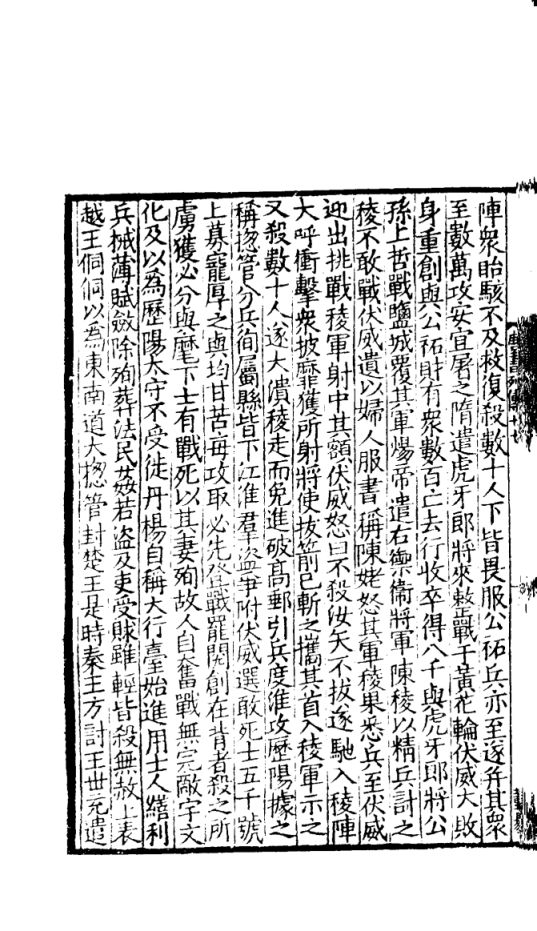 陣衆眙駭不及救復殺數十人下皆畏服公祏兵亦至遂幷其衆
至數萬攻安宜屠之隋遣虎牙郎將來整戰于黃花輪伏威大敗
身重創與公祏財有衆數百亡去行收卒得八千與虎牙郎將公
孫上哲戰鹽城覆其軍煬帝遣右禦衞將軍陳稜以精兵討之
稜不敢戰伏威遺以婦人服書稱陳姥怒其軍稜果悉兵至伏威
迎出挑戰稜軍射中其額伏威怒曰不殺汝矢不拔遂馳入稜陣
大呼衝擊衆披靡獲所射將使拔箭已斬之攜其首入稜軍示之
又殺數十人遂大潰稜走而免進破高郵引兵度淮攻歷陽據之
稱揔管分兵徇屬縣皆下江淮羣盜爭附伏威選敢死士五千號
上募寵厚之與均甘苦每攻取必先登戰罷閱創在背者殺之所
虜獲必分與麾下士有戰死以其妻殉故人自奮戰無完敵宇文
化及以為歷陽太守不受徙丹楊自稱大行臺始進用士人繕利
兵械薄賦斂除殉葬法民姦若盜及吏受賕雖輕皆殺無赦上表
越王侗侗以為東南道大揔管封楚王是時秦王方討王世充遣